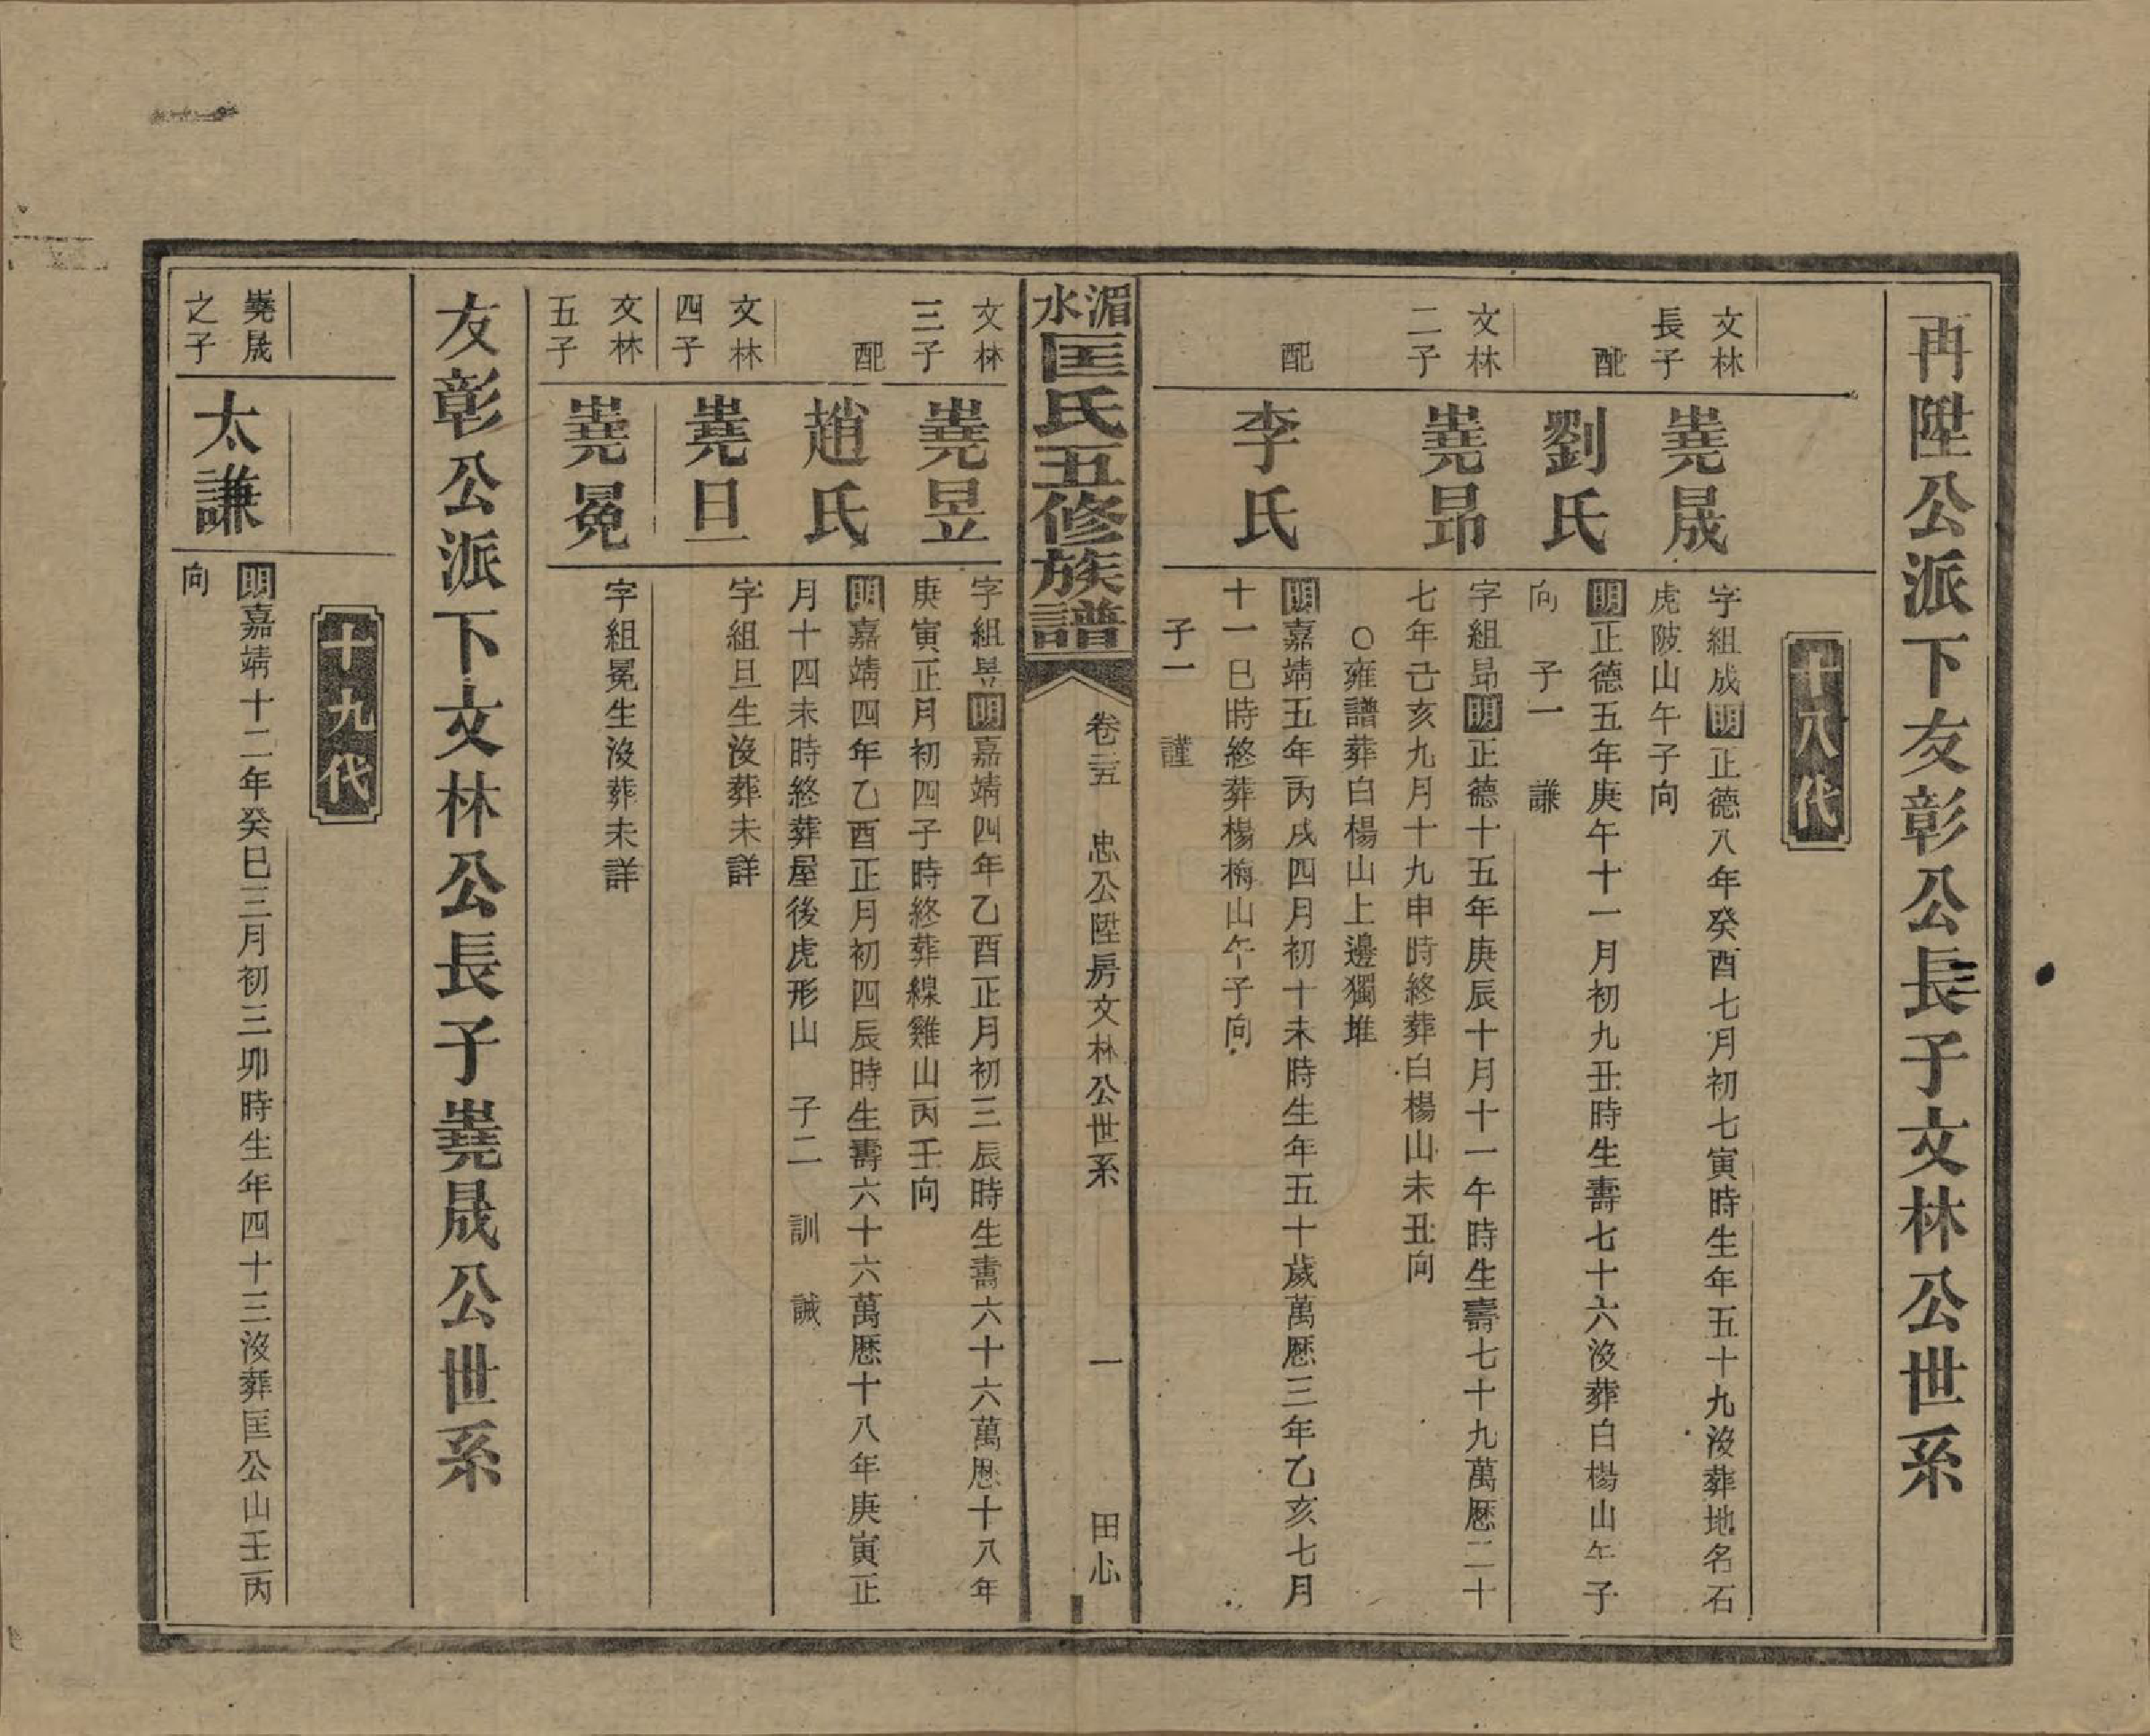 再陞公派下友彰公長子文林公世系
十八代
文林
長子
堯晟
字組成明正德八年癸酉七月初七寅時生年五十九沒葬地名石
虎陂山午子向
配
劉氏
明正德五年庚午十一月初九丑時生壽七十六沒葬白楊山午子
向　子一　謙
文林
二子
堯昂
字組昻明正德十五年庚辰十月十一午時生壽七十九萬歷二十
七年己亥九月十九申時終葬白楊山未丑向
〇雍譜葬白楊山上邊獨堆
配
李氏
明嘉靖五年丙戌四月初十未時生年五十歲萬歷三年乙亥七月
十一巳時終葬楊梅山午子向
子一　謹
湄水匡氏五修族譜
卷三五　忠公陞房文林公世系　一　田心
文林
三子
堯昱
字組昱明嘉靖四年乙酉正月初三辰時生壽六十六萬歷十八年
庚寅正月初四子時終葬線雞山丙壬向
配
趙氏
明嘉靖四年乙酉正月初四辰時生壽六十六萬歷十八年庚寅正
月十四未時終葬屋後虎形山　子二　訓　誠
文林
四子
堯旦
字組旦生沒葬未詳
文林
五子
堯冕
字組冕生沒葬未詳
友彰公派下文林公長子堯晟公世系
十九代
堯晟
之子
太謙
明嘉靖十二年癸巳三月初三卯時生年四十三沒葬匡公山壬丙
向